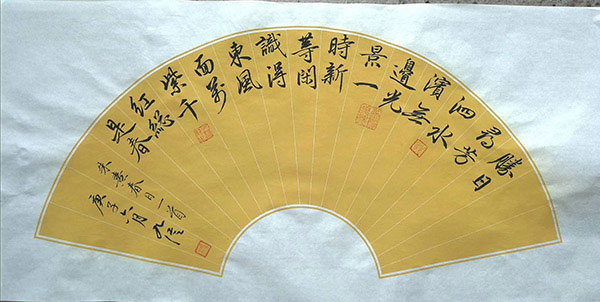 勝日
尋芳
泗水
濱無
邊光
景一
時新
等閑
識得
東風
面萬
紫千
紅總
是春
朱熹春日一首
庚子六月